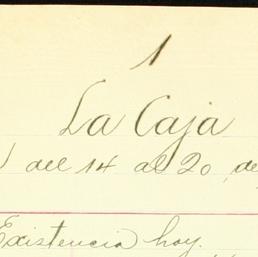 1
La Caja
del 14 al 20, de
Existencia hoy.